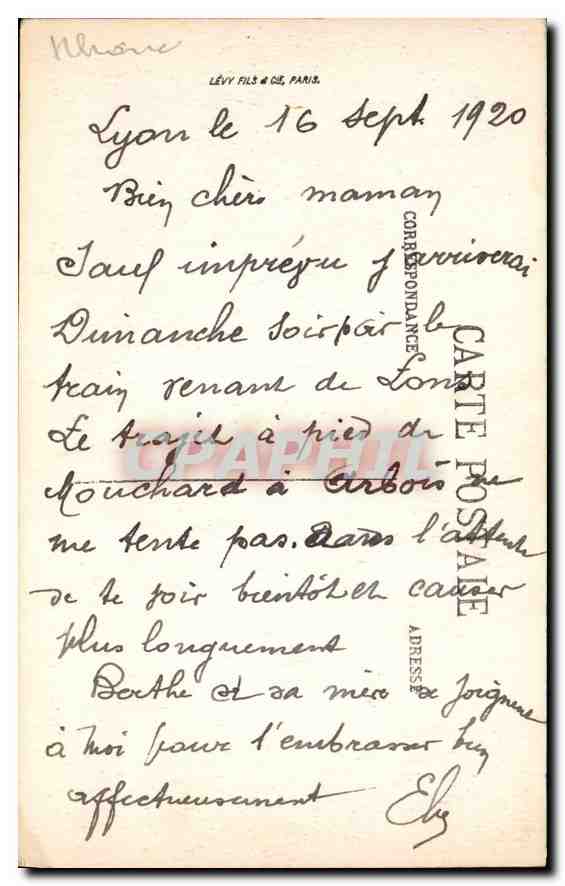 Rhône
LÉVY FILS & CIE, PARIS.
Lyon le 16 sept. 1920
Bien chère maman
Sauf imprévu j'arriverai
Dimanche soir par le
train venant de Lons
Le trajet à pied de
Mouchard à Arbois ne
me tente pas. Dans l'attente
de te voir bientôt et causer
plus longuement
Berthe et sa mère se joignent
à moi pour t'embrasser bien
affectueusement
CORRESPONDANCE
CARTE POSTALE
ADRESSE
CPAPHIL